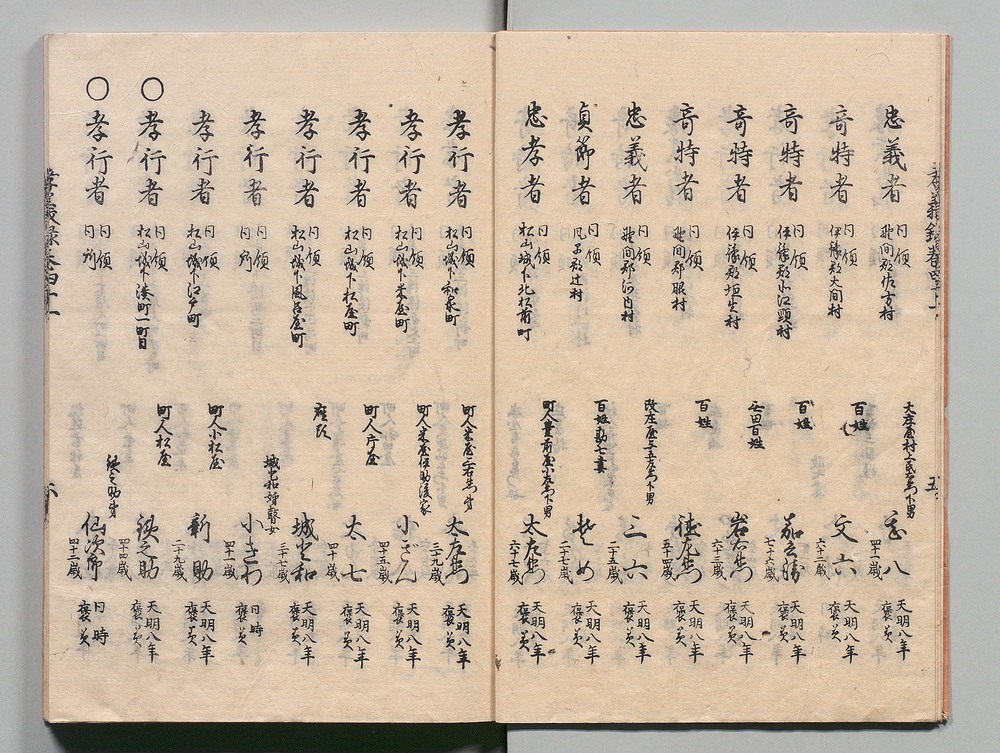 忠義者
同領
野間郡佐方村
大庄屋村上氏左衛門下男
四十一歳
天明八年
褒美
奇特者
同領
伊豫郡大間村
百姓
文六
六十二歳
天明八年
褒美
奇特者
同領
伊豫郡小江頭村
百姓
七十六歳
天明八年
褒美
奇特者
同領
伊豫郡垣生村
無田百姓
岩右衛門
六十三歳
天明八年
褒美
奇特者
同領
野間郡眼村
百姓
五十四歳
天明八年
褒美
忠義者
同領
野間郡河内村
改庄屋与五左衛門下男
三六
二十五歳
天明八年
褒美
貞節者
同領
風早郡辻村
百姓勘七妻
そめ
二十七歳
天明八年
褒美
忠孝者
同領
松山城下北松前町
町人豊前屋小左衛門下男
太左衛門
六十七歳
天明八年
褒美
孝行者
同領
松山城下和泉町
太左衛門
三十九歳
天明八年
褒美
孝行者
同領
松山城下米屋町
町人米屋伊助後家
小ぎん
四十五歳
天明八年
褒美
孝行者
同領
松山城下松屋町
町人庁屋
太七
四十歳
天明八年
褒美
孝行者
同領
松山城下風呂屋町
座頭
城美和
三十七歳
天明八年
褒美
孝行者
同領
同所
小きわ
四十一歳
同時
褒美
孝行者
同領
松山城下江戸町
町人小松屋
新助
二十九歳
天明八年
褒美
〇
孝行者
同領
松山城下湊町一町目
町人松屋
鉄之助
四十四歳
天明八年
褒美
〇
孝行者
同領
同所
鉄之助弟
仙次郎
四十二歳
同時
褒美